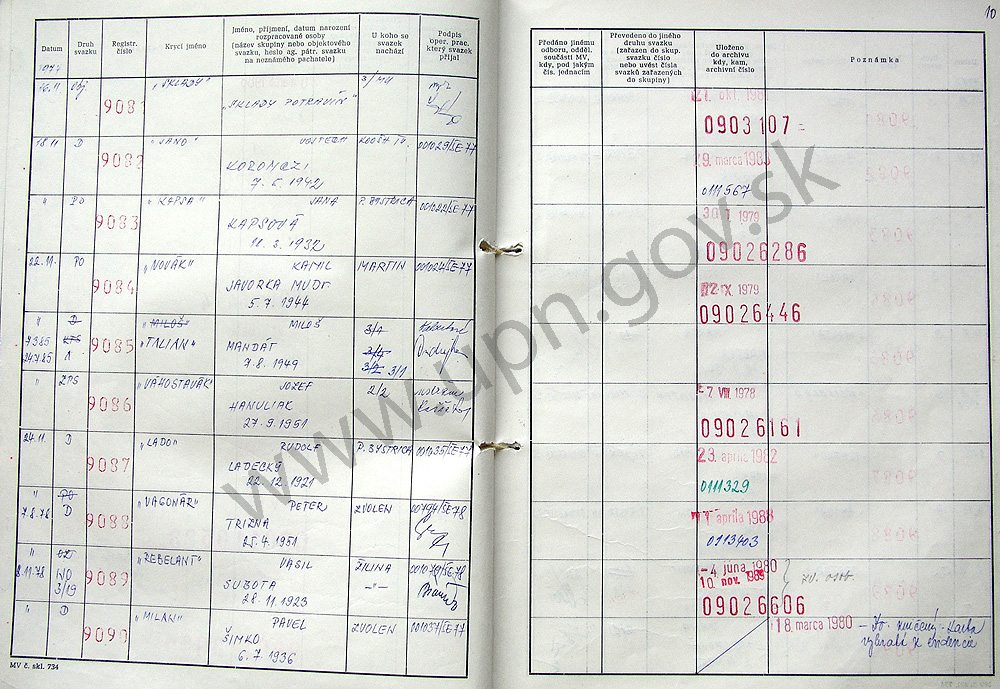 10
Datum
Druh svazku
Registr. číslo
Krycí jméno
Jméno, příjmení, datum narození rozpracované osoby (název skupiny nebo objektového svazku, heslo ag. pátr. svazku na neznámého pachatele)
U koho se svazek nachází
Podpis oper. prac. který svazek přijal
Předáno jinému odboru, odděl. součásti MV, kdy, pod jakým čís. jednacím
Převedeno do jiného druhu svazku (zařazen do skup. svazku číslo nebo uvést čísla svazků zařazených do skupiny)
Uloženo do archivu kdy, kam, archivní číslo
Poznámka
1977
16.11 Obj. 9081 "SKLADY" "SKLADY POTRAVÍN"
0903107
18.11 D 9082 "JANO" VOJTECH
KOROMCZI
7.5.1942
001029/SE-77
9. marca 1983
0111567
" PO 9083 "KAPSA" JANA P. BYSTRICA
KAPSOVÁ
11.3.1932
001022/SE-77
30. I 1979
09026286
22.11. PO 9084 "NOVÁK" KAMIL MARTIN 001024/SE-77
JAVORKA MUDr
5.7.1944
X 1979
09026446
" D 9085 "MILOŠ" MILOŠ 3/1
7385 KTS "TALIAN" MANDÁT
24785 A 7.8.1949 3/2 3/1
" ZPS 9086 "VÁHOSTAVÁK" JOZEF 2/2
HANULIAK
27.9.1951
7 VIII. 1978
09026161
24.11. D 9087 "LADO" RUDOLF P. BYSTRICA 001035/SE-77
LADECKÝ
22.12.1921
23. apríla 1982
0111329
" PO 9088 "VAGONÁR" PETER ZVOLEN 00794/SE-78
7.8.78 D TRIZNA
25.4.1951
apríla 1988
0113403
" 9089 "REBELANT" VASIL ŽILINA 001079/SE-78
8.11.78 NO SUBOTA -"-
3/19 28.11.1923
-4 júna 1980
10 nov. 1989 zv. osob
09026606
" D 9090 "MILAN" PAVEL ZVOLEN 001037/SE-77
ŠIMKO
6.7.1936
18. marca 1980 - zničený. Karta
vybratá z evidencie
MV č. skl. 734
www.upn.gov.sk